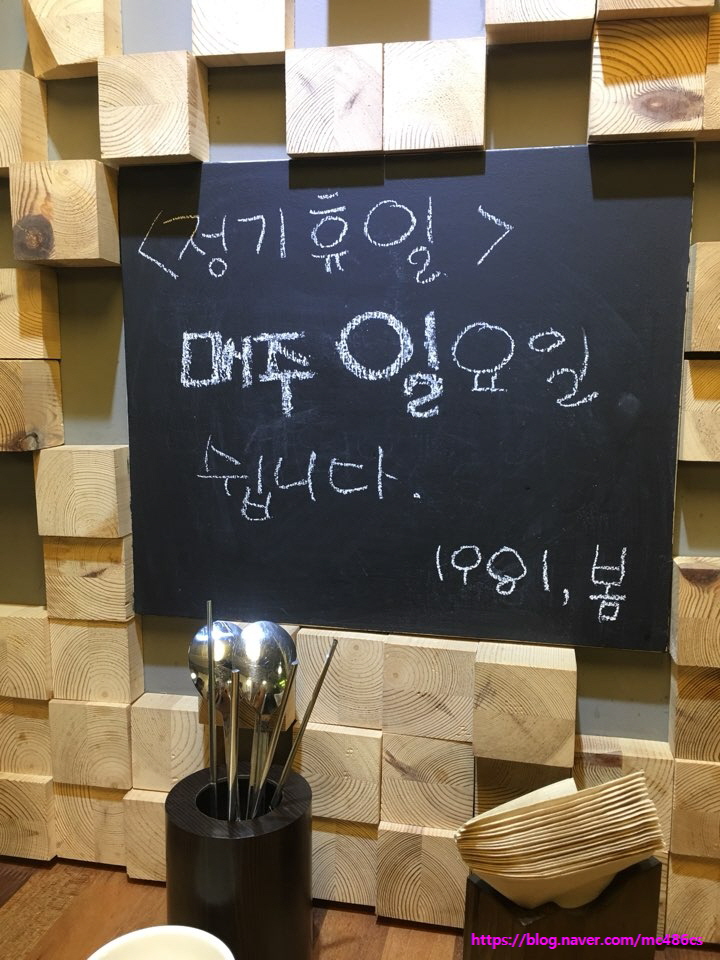 <정기휴일>
매주 일요일
쉽니다.
1981, 봄
https://blog.naver.com/mc480cs